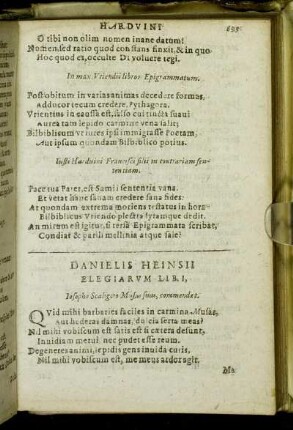 HARDVINI
O tibi non olim nomen inane datum!
Nomen, sed ratio quod constans finxit, & in quo
Hoc quod es, occulte Di voluere tegi.
In max. Vriendii libros Epigrammatum.
Post obitum in varias animas decedere formas,
Adducor tecum credere, Pythagora.
Vrientius in caussa est,
Aurea tam lepido carmine vena salit;
Bilbilicus veniures ipsi immigrasse Poetam,
Aut ipsum quondam Bilbilico potius.
Iusti Harduini Francisci filii in contrariam sen-
tentiam.
Pace tua Pater, est Samii sententia vana.
Et vetat hanc sanam credere sana fides:
At quondam extrema moriens testatus in hora
Bilbilicus Vriendo plectra lyramque dedit.
An mirum est igitur, si tersa Epigrammata scribat,
Condiat & parili mellinia atque sale?
DANIELIS HEINSII
ELEGIARVM LIB. I,
Iosepho Scaligero Musas suas, commendat.
QVid mihi barbaries faciles in carmina Musas,
Aut hederas damnas, dulcia serta meas?
Nil mihi vobiscum est satis est si cætera desunt,
Invidiam metui nec pudet esse reum.
Degeneres animi, lepidis gens invida curis,
Nil mihi vobiscum est, me meus ardor agit.
Me